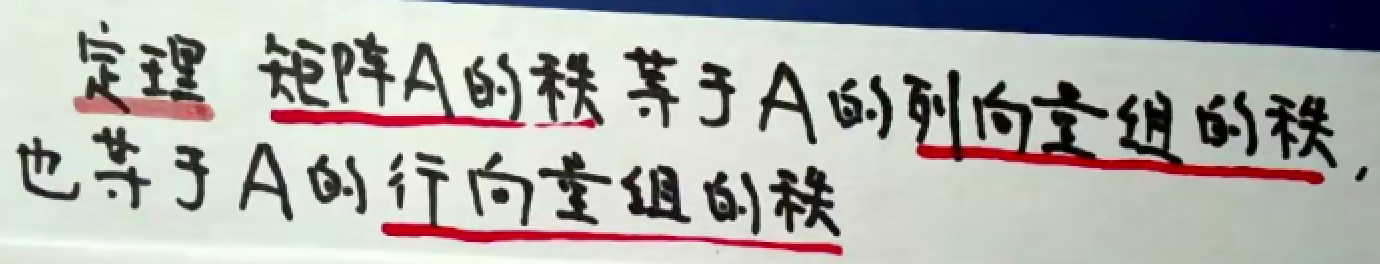 定理 矩阵A的秩等于A的列向量组的秩,
也等于A的行向量组的秩